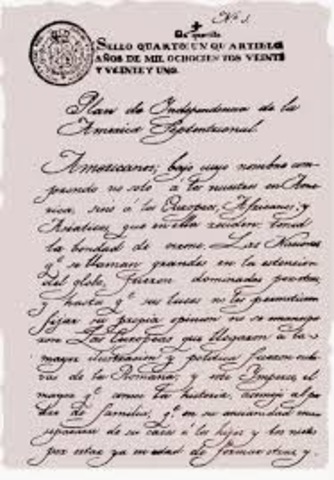 Nº 1.
Un quartillo
SELLO QUARTO, UN QUARTILLO,
AÑOS DE MIL OCHOCIENTOS VEINTE
Y VEINTE Y UNO.
Plan de Independencia de la
America Septentrional.
Americanos, bajo cuyo nombre com-
prendo no solo á los nacidos en Ame-
rica, sino á los Europeos, Africanos, y
Asiaticos, que en ella residen: tened
la bondad de oirme. Las Naciones
qᵉ se llaman grandes en la estension
del globo, fueron dominadas por otras,
y hasta qᵉ sus luces no les permitieron
fijar su propia opinion no se emancipa-
ron. Las Europeas que llegaron á la
mayor ilustracion y politica fueron escla-
vas de la Romana; y este Imperio, el
mayor qᵉ conoce la historia, asemejó al pa-
dre de familias, qᵉ en su ancianidad mira
separarse de su casa á los hijos y los nietos
por estar ya en edad de formar otras, y